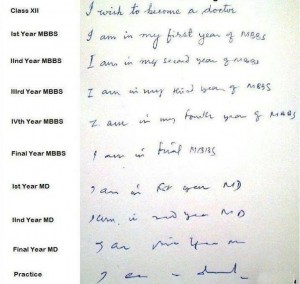 Class XII I wish to become a doctor
Ist Year MBBS I am in my first year of MBBS
IInd Year MBBS I am in my second year of MBBS
IIIrd Year MBBS I am in my third year of MBBS
IVth Year MBBS I am in my fourth year of MBBS
Final Year MBBS I am in final MBBS
Ist Year MD I am in year MD
IInd Year MD I am in 2nd year MD
Final Year MD
Practice